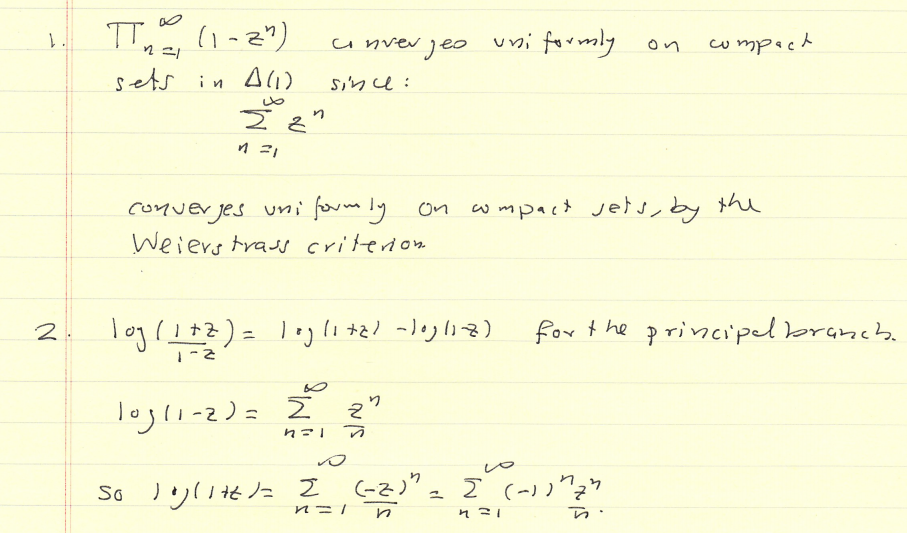 1. ∏_{n=1}^∞ (1-z^n) converges uniformly on compact
sets in Δ(1) since:
∑_{n=1}^∞ z^n
converges uniformly on compact sets, by the
Weierstrass criterion
2. log(\frac{1+z}{1-z}) = log(1+z) - log(1-z) for the principal branch.
log(1-z) = ∑_{n=1}^∞ \frac{z^n}{n}
so log(1+z) = ∑_{n=1}^∞ \frac{(-z)^n}{n} = ∑_{n=1}^∞ (-1)^n \frac{z^n}{n}.